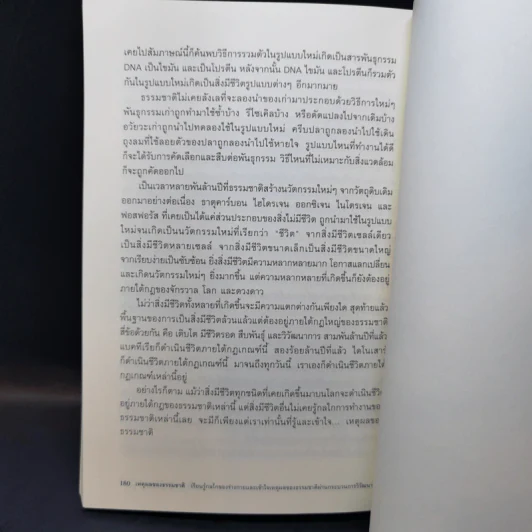 เคยไปสัมภาษณ์นี้ก็ค้นพบวิธีการรวมตัวในรูปแบบใหม่เกิดเป็นสารพันธุกรรม
DNA เป็นไขมัน และเป็นโปรตีน หลังจากนั้น DNA ไขมัน และโปรตีนก็รวมตัว
กันในรูปแบบใหม่เกิดเป็นสิ่งมีชีวิตรูปแบบต่างๆ อีกมากมาย
ธรรมชาติไม่เคยลังเลที่จะลองนำของเก่ามาประกอบด้วยวิธีการใหม่ๆ
พันธุกรรมเก่าถูกทำมาใช้ซ้ำบ้าง รีไซเคิลบ้าง หรือดัดแปลงไปจากเดิมบ้าง
อวัยวะเก่าถูกนำไปทดลองใช้ในรูปแบบใหม่ ครีบปลาถูกลองนำไปใช้เดิน
ถุงลมที่ใช้ลอยตัวของปลาถูกลองนำไปใช้หายใจ รูปแบบไหนที่ทำงานได้ดี
ก็จะได้รับการคัดเลือกและสืบต่อพันธุกรรม วิธีไหนที่ไม่เหมาะกับสิ่งแวดล้อม
ก็จะถูกคัดออกไป
เป็นเวลาหลายพันล้านปีที่ธรรมชาติสร้างนวัตกรรมใหม่ๆ จากวัตถุดิบเดิม
ออกมาอย่างต่อเนื่อง ธาตุคาร์บอน ไฮโดรเจน ออกซิเจน ไนโตรเจน และ
ฟอสฟอรัส ที่เคยเป็นได้แค่ส่วนประกอบของสิ่งไม่มีชีวิต ถูกนำมาใช้ในรูปแบบ
ใหม่จนเกิดเป็นนวัตกรรมใหม่ที่เรียกว่า "ชีวิต" จากสิ่งมีชีวิตเซลล์เดียว
เป็นสิ่งมีชีวิตหลายเซลล์ จากสิ่งมีชีวิตขนาดเล็กเป็นสิ่งมีชีวิตขนาดใหญ่
จากเรียบง่ายเป็นซับซ้อน ยิ่งสิ่งมีชีวิตมีความหลากหลายมาก โอกาสแลกเปลี่ยน
และเกิดนวัตกรรมใหม่ๆ ยิ่งมากขึ้น แต่ความหลากหลายที่เกิดขึ้นก็ยังต้องอยู่
ภายใต้กฎของจักรวาล โลก และดวงดาว
ไม่ว่าสิ่งมีชีวิตทั้งหลายที่เกิดขึ้นจะมีความแตกต่างกันเพียงใด สุดท้ายแล้ว
พื้นฐานของการเป็นสิ่งมีชีวิตล้วนแล้วแต่ต้องอยู่ภายใต้กฎใหญ่ของธรรมชาติ
สี่ข้อด้วยกัน คือ เติบโต มีชีวิตรอด สืบพันธุ์ และวิวัฒนาการ สามพันล้านปีที่แล้ว
แบคทีเรียก็ดำเนินชีวิตภายใต้กฎเกณฑ์นี้ สองร้อยล้านปีที่แล้ว ไดโนเสาร์
ก็ดำเนินชีวิตภายใต้กฎเกณฑ์นี้ มาจนถึงทุกวันนี้ เราเองก็ดำเนินชีวิตภายใต้
กฎเกณฑ์เหล่านี้อยู่
อย่างไรก็ตาม แม้ว่าสิ่งมีชีวิตทุกชนิดที่เคยเกิดขึ้นมาบนโลกจะดำเนินชีวิต
อยู่ภายใต้กฎของธรรมชาติเหล่านี้ แต่สิ่งมีชีวิตอื่นไม่เคยรู้กลไกการทำงานของ
ธรรมชาติเหล่านี้เลย จะมีก็เพียงแต่เราเท่านั้นที่รู้และเข้าใจ... เหตุผลของ
ธรรมชาติ
180 เหตุผลของธรรมชาติ เรียนรู้กลไกของร่างกายและเข้าใจเหตุผลของธรรมชาติผ่านกระบวนการวิวัฒนา